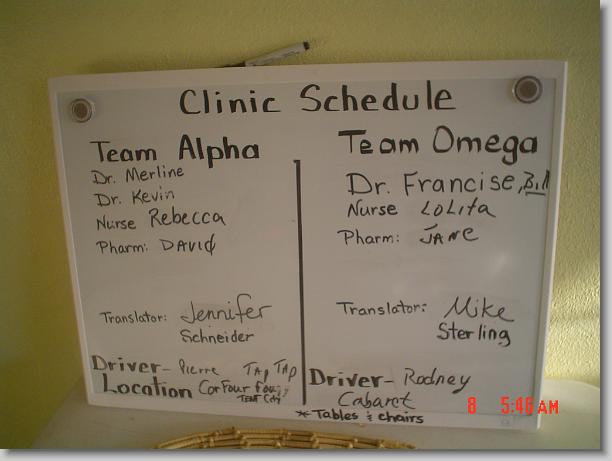 Clinic Schedule
Team Alpha
Dr. Merline
Dr. Kevin
Nurse Rebecca
Pharm: DAVID
Translator: Jennifer
Schneider
Driver- Pierre TAP TAP
Location Carfour Fougy
TENT City
Team Omega
Dr. Francise, Bill
Nurse LOLita
Pharm: JANE
Translator: Mike
Sterling
Driver- Rodney
Cabaret
* Tables & chairs
8 5:46 AM